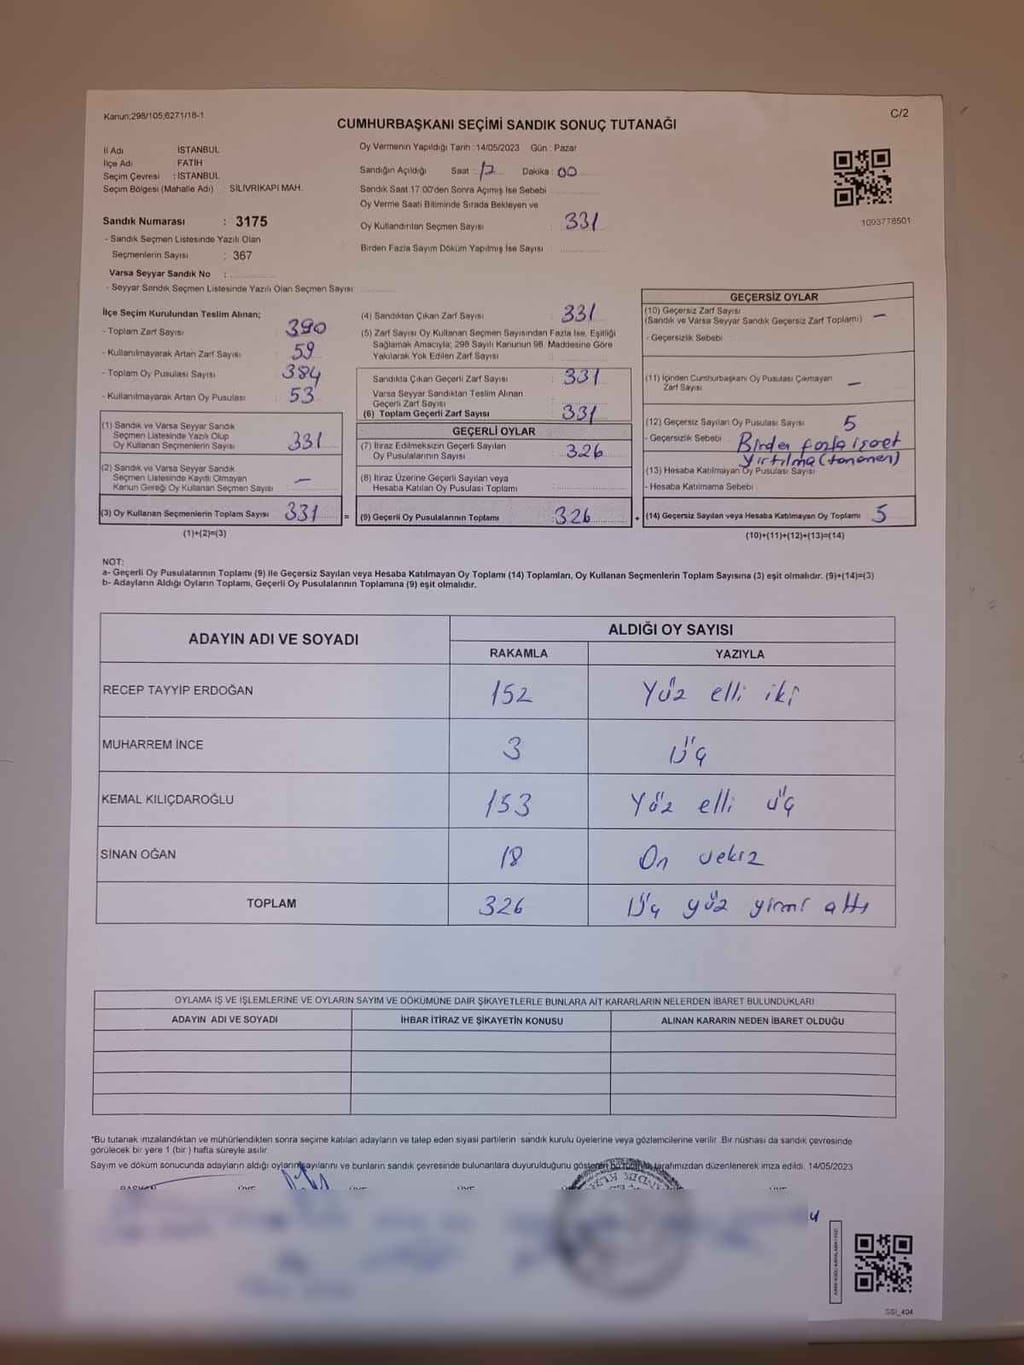 Kanun;298/105,6271/18-1
C/2
CUMHURBAŞKANI SEÇİMİ SANDIK SONUÇ TUTANAĞI
İl Adı İSTANBUL
İlçe Adı FATİH
Seçim Çevresi : İSTANBUL
Seçim Bölgesi (Mahalle Adı) SİLİVRİKAPI MAH.
Sandık Numarası : 3175
- Sandık Seçmen Listesinde Yazılı Olan
Seçmenlerin Sayısı : 367
Varsa Seyyar Sandık No :
- Seyyar Sandık Seçmen Listesinde Yazılı Olan Seçmen Sayısı
Oy Vermenin Yapıldığı Tarih : 14/05/2023 Gün : Pazar
Sandığın Açıldığı Saat : 17 Dakika : 00
Sandık Saat 17.00'den Sonra Açılmış İse Sebebi
Oy Verme Saati Bitiminde Sırada Bekleyen ve
Oy Kullandırılan Seçmen Sayısı : 331
Birden Fazla Sayım Döküm Yapılmış İse Sayısı
1093778501
İlçe Seçim Kurulundan Teslim Alınan;
- Toplam Zarf Sayısı : 390
- Kullanılmayarak Artan Zarf Sayısı 59
- Toplam Oy Pusulası Sayısı : 384
- Kullanılmayarak Artan Oy Pusulası : 53
(1) Sandık ve Varsa Seyyar Sandık
Seçmen Listesinde Yazılı Olup
Oy Kullanan Seçmenlerin Sayısı 331
(2) Sandık ve Varsa Seyyar Sandık
Seçmen Listesinde Kayıtlı Olmayan
Kanun Gereği Oy Kullanan Seçmen Sayısı —
(3) Oy Kullanan Seçmenlerin Toplam Sayısı 331
(1)+(2)=(3)
=
(4) Sandıktan Çıkan Zarf Sayısı : 331
(5) Zarf Sayısı Oy Kullanan Seçmen Sayısından Fazla İse, Eşitliği
Sağlamak Amacıyla; 298 Sayılı Kanunun 98. Maddesine Göre
Yakılarak Yok Edilen Zarf Sayısı :
Sandıkta Çıkan Geçerli Zarf Sayısı : 331
Varsa Seyyar Sandıktan Teslim Alınan
Geçerli Zarf Sayısı
(6) Toplam Geçerli Zarf Sayısı : 331
GEÇERLİ OYLAR
(7) İtiraz Edilmeksizin Geçerli Sayılan
Oy Pusulalarının Sayısı : 326
(8) İtiraz Üzerine Geçerli Sayılan veya
Hesaba Katılan Oy Pusulası Toplamı
(9) Geçerli Oy Pusulalarının Toplamı : 326
+
GEÇERSİZ OYLAR
(10) Geçersiz Zarf Sayısı
(Sandık ve Varsa Seyyar Sandık Geçersiz Zarf Toplamı) : —
- Geçersizlik Sebebi :
(11) İçinden Cumhurbaşkanı Oy Pusulası Çıkmayan
Zarf Sayısı —
(12) Geçersiz Sayılan Oy Pusulası Sayısı : 5
- Geçersizlik Sebebi : Birden fazla işaret
yırtılma (tamamen)
(13) Hesaba Katılmayan Oy Pusulası Sayısı
- Hesaba Katılmama Sebebi
(14) Geçersiz Sayılan veya Hesaba Katılmayan Oy Toplamı 5
(10)+(11)+(12)+(13)=(14)
NOT:
a- Geçerli Oy Pusulalarının Toplamı (9) ile Geçersiz Sayılan veya Hesaba Katılmayan Oy Toplamı (14) Toplamları, Oy Kullanan Seçmenlerin Toplam Sayısına (3) eşit olmalıdır. (9)+(14)=(3)
b- Adayların Aldığı Oyların Toplamı, Geçerli Oy Pusulalarının Toplamına (9) eşit olmalıdır.
ADAYIN ADI VE SOYADI
ALDIĞI OY SAYISI
RAKAMLA YAZIYLA
RECEP TAYYİP ERDOĞAN 152 Yüz elli iki
MUHARREM İNCE 3 Üç
KEMAL KILIÇDAROĞLU 153 Yüz elli üç
SİNAN OĞAN 18 On sekiz
TOPLAM 326 Üç yüz yirmi altı
OYLAMA İŞ VE İŞLEMLERİNE VE OYLARIN SAYIM VE DÖKÜMÜNE DAİR ŞİKAYETLERLE BUNLARA AİT KARARLARIN NELERDEN İBARET BULUNDUKLARI
ADAYIN ADI VE SOYADI İHBAR İTİRAZ VE ŞİKAYETİN KONUSU ALINAN KARARIN NEDEN İBARET OLDUĞU
*Bu tutanak imzalandıktan ve mühürlendikten sonra seçime katılan adayların ve talep eden siyasi partilerin sandık kurulu üyelerine veya gözlemcilerine verilir. Bir nüshası da sandık çevresinde
görülecek bir yere 1 (bir ) hafta süreyle asılır.
Sayım ve döküm sonucunda adayların aldığı oyların sayılarını ve bunların sandık çevresinde bulunanlara duyurulduğunu gösteren bu tutanak tarafımızdan düzenlenerek imza edildi. 14/05/2023
SSI_404